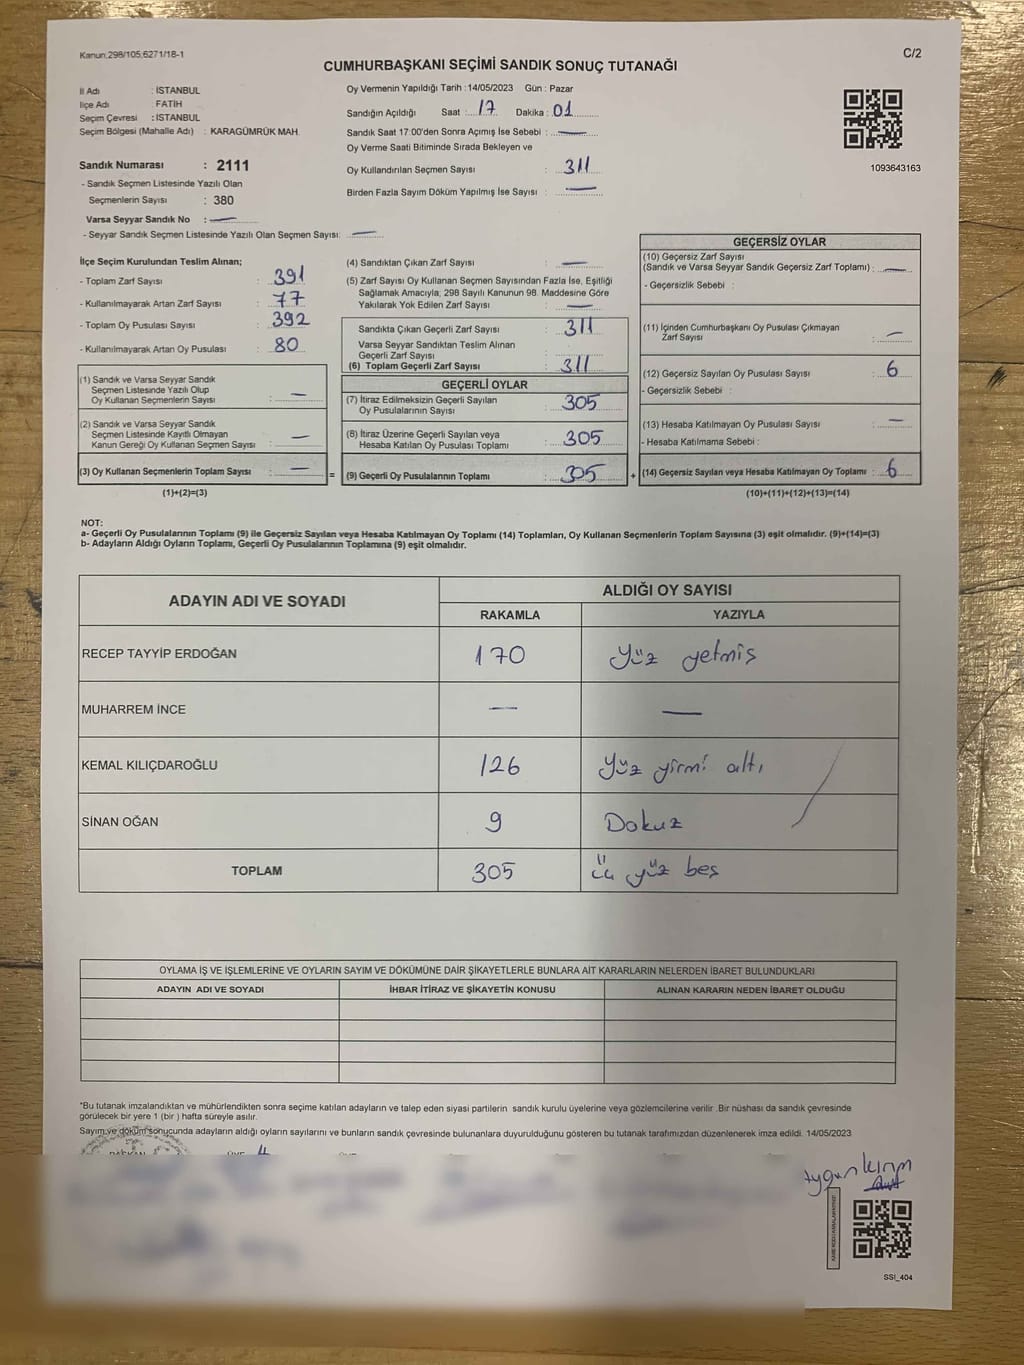 Kanun:298/105;6271/18-1
C/2
CUMHURBAŞKANI SEÇİMİ SANDIK SONUÇ TUTANAĞI
İl Adı : İSTANBUL
İlçe Adı : FATİH
Seçim Çevresi : İSTANBUL
Seçim Bölgesi (Mahalle Adı) : KARAGÜMRÜK MAH.
Oy Vermenin Yapıldığı Tarih : 14/05/2023 Gün : Pazar
Sandığın Açıldığı Saat : 17 Dakika : 01
Sandık Saat 17:00'den Sonra Açımış İse Sebebi : —
Oy Verme Saati Bitiminde Sırada Bekleyen ve
Oy Kullandırılan Seçmen Sayısı : 311
Birden Fazla Sayım Döküm Yapılmış İse Sayısı : —
1093643163
Sandık Numarası : 2111
- Sandık Seçmen Listesinde Yazılı Olan
Seçmenlerin Sayısı : 380
Varsa Seyyar Sandık No : —
- Seyyar Sandık Seçmen Listesinde Yazılı Olan Seçmen Sayısı: —
İlçe Seçim Kurulundan Teslim Alınan;
- Toplam Zarf Sayısı : 391
- Kullanılmayarak Artan Zarf Sayısı : 77
- Toplam Oy Pusulası Sayısı : 392
- Kullanılmayarak Artan Oy Pusulası : 80
(1) Sandık ve Varsa Seyyar Sandık
Seçmen Listesinde Yazılı Olup
Oy Kullanan Seçmenlerin Sayısı : —
(2) Sandık ve Varsa Seyyar Sandık
Seçmen Listesinde Kayıtlı Olmayan
Kanun Gereği Oy Kullanan Seçmen Sayısı : —
(3) Oy Kullanan Seçmenlerin Toplam Sayısı : —
(1)+(2)=(3)
(4) Sandıktan Çıkan Zarf Sayısı : —
(5) Zarf Sayısı Oy Kullanan Seçmen Sayısından Fazla İse, Eşitliği
Sağlamak Amacıyla, 298 Sayılı Kanunun 98. Maddesine Göre
Yakılarak Yok Edilen Zarf Sayısı : —
Sandıkta Çıkan Geçerli Zarf Sayısı : 311
Varsa Seyyar Sandıktan Teslim Alınan
Geçerli Zarf Sayısı :
(6) Toplam Geçerli Zarf Sayısı : 311
GEÇERLİ OYLAR
(7) İtiraz Edilmeksizin Geçerli Sayılan
Oy Pusulalarının Sayısı : 305
(8) İtiraz Üzerine Geçerli Sayılan veya
Hesaba Katılan Oy Pusulası Toplamı : 305
= (9) Geçerli Oy Pusulalarının Toplamı : 305 +
GEÇERSİZ OYLAR
(10) Geçersiz Zarf Sayısı
(Sandık ve Varsa Seyyar Sandık Geçersiz Zarf Toplamı) : —
- Geçersizlik Sebebi :
(11) İçinden Cumhurbaşkanı Oy Pusulası Çıkmayan
Zarf Sayısı : —
(12) Geçersiz Sayılan Oy Pusulası Sayısı : 6
- Geçersizlik Sebebi :
(13) Hesaba Katılmayan Oy Pusulası Sayısı : —
- Hesaba Katılmama Sebebi :
(14) Geçersiz Sayılan veya Hesaba Katılmayan Oy Toplamı : 6
(10)+(11)+(12)+(13)=(14)
NOT:
a- Geçerli Oy Pusulalarının Toplamı (9) ile Geçersiz Sayılan veya Hesaba Katılmayan Oy Toplamı (14) Toplamları, Oy Kullanan Seçmenlerin Toplam Sayısına (3) eşit olmalıdır. (9)+(14)=(3)
b- Adayların Aldığı Oyların Toplamı, Geçerli Oy Pusulalarının Toplamına (9) eşit olmalıdır.
ADAYIN ADI VE SOYADI ALDIĞI OY SAYISI
RAKAMLA YAZIYLA
RECEP TAYYİP ERDOĞAN 170 Yüz yetmiş
MUHARREM İNCE — —
KEMAL KILIÇDAROĞLU 126 Yüz yirmi altı
SİNAN OĞAN 9 Dokuz
TOPLAM 305 üç yüz beş
OYLAMA İŞ VE İŞLEMLERİNE VE OYLARIN SAYIM VE DÖKÜMÜNE DAİR ŞİKAYETLERLE BUNLARA AİT KARARLARIN NELERDEN İBARET BULUNDUKLARI
ADAYIN ADI VE SOYADI İHBAR İTİRAZ VE ŞİKAYETİN KONUSU ALINAN KARARIN NEDEN İBARET OLDUĞU
*Bu tutanak imzalandıktan ve mühürlendikten sonra seçime katılan adayların ve talep eden siyasi partilerin sandık kurulu üyelerine veya gözlemcilerine verilir .Bir nüshası da sandık çevresinde
görülecek bir yere 1 (bir ) hafta süreyle asılır.
Sayım ve döküm sonucunda adayların aldığı oyların sayılarını ve bunların sandık çevresinde bulunanlara duyurulduğunu gösteren bu tutanak tarafımızdan düzenlenerek imza edildi. 14/05/2023
BAŞKAN
SSI_404